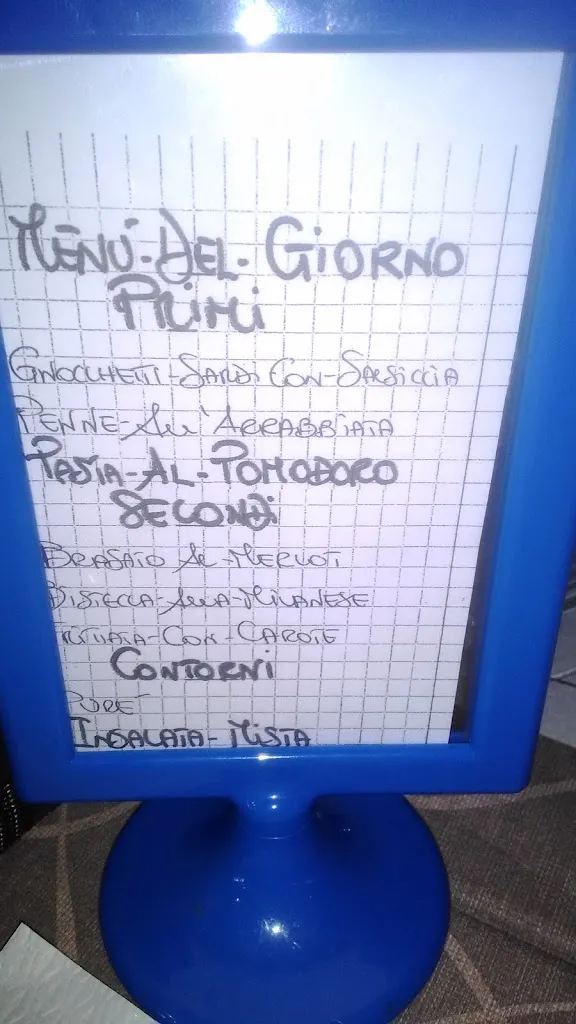 Menù-Del-Giorno
Primi
Gnocchetti-Sardi Con-Salsiccia
Penne-All'Arrabbiata
Pasta-Al-Pomodoro
Secondi
Brasato Al-Merlot
Bistecca-Alla-Milanese
Frittata-Con-Carote
Contorni
Purè
Insalata-Mista